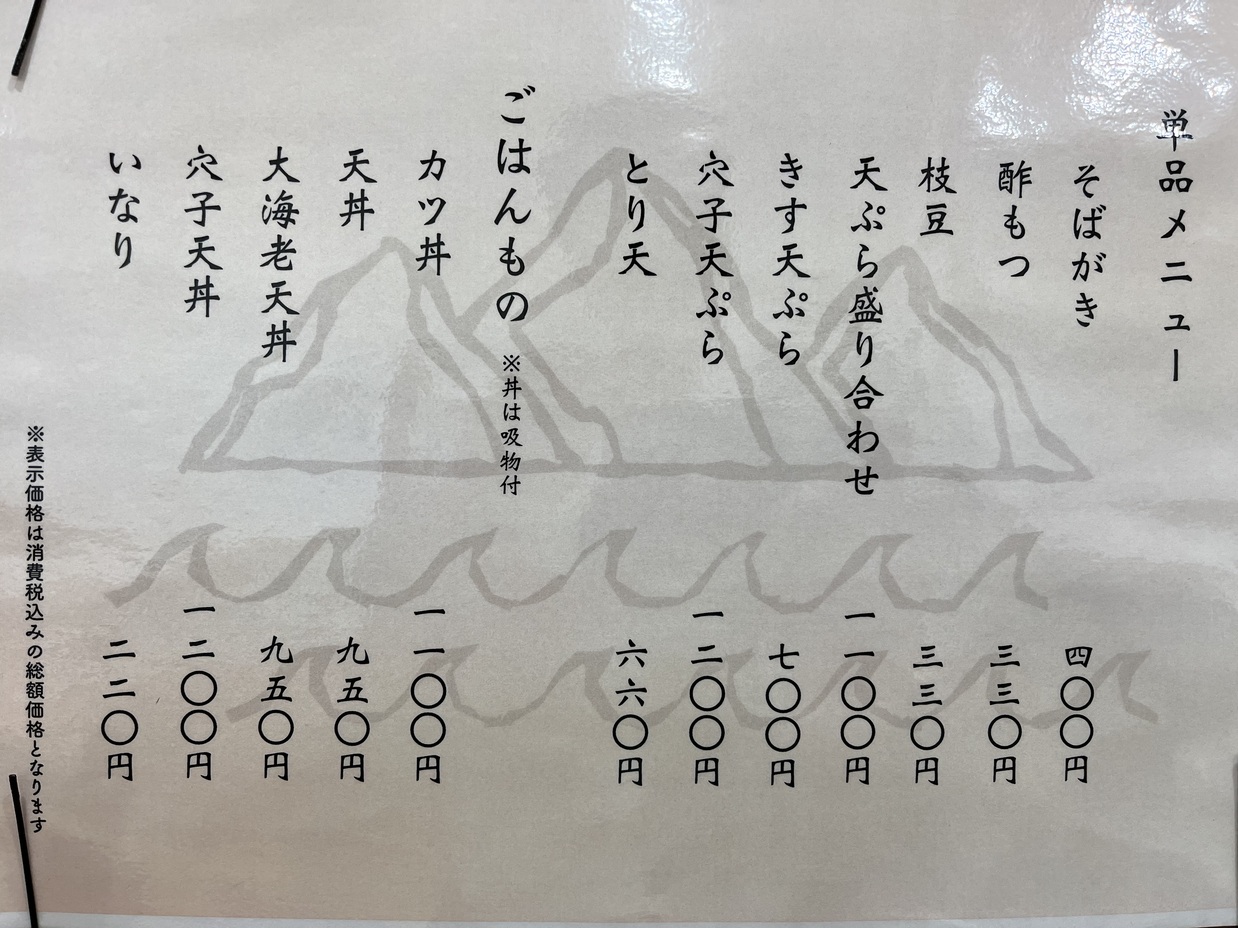 単品メニュー
そばがき 四〇〇円
酢もつ 三三〇円
枝豆 三三〇円
天ぷら盛り合わせ 一一〇〇円
きす天ぷら 七〇〇円
穴子天ぷら 一二〇〇円
とり天 六六〇円
ごはんもの ※丼は吸物付
カツ丼 一一〇〇円
天丼 九五〇円
大海老天丼 九五〇円
穴子天丼 一二〇〇円
いなり 二二〇円
※表示価格は消費税込みの総額価格となります